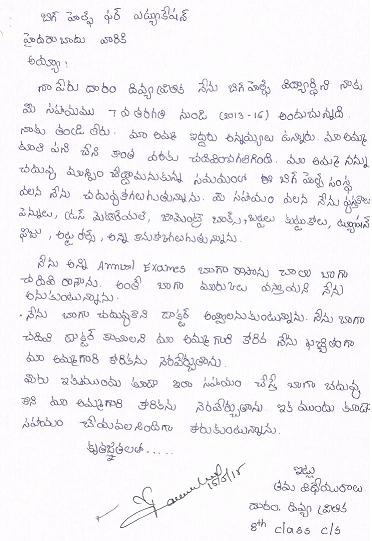 బిగ్ హెల్ప్ ఫర్ ఎడ్యుకేషన్
హైదరాబాదు వారికి
అయ్యా!
నా పేరు దారం దివ్య నేను బిగ్ హెల్ప్ విద్యార్థిని నాకు
మీ సహాయము 7 వ తరగతి నుండి (2013-16) అందుచున్నది.
నాకు తండ్రి లేరు. మా అమ్మ ఇద్దరు అన్నయ్యలు ఉన్నారు. మా అమ్మ
కూలి పని చేసి కొంత వరకు చదివించగలిగింది. మా అమ్మ నన్ను
చదువు మాన్పించేద్దామనుకున్న సమయంలో ఈ బిగ్ హెల్ప్ సంస్థ
వలన నేను చదువుకోగలుగుతున్నాను. మీ సహాయం వలన నేను పుస్తకాలు
పెన్నులు, టెస్ట్ మెటీరియల్, జామెంట్రీ బాక్స్, బట్టలు ట్యూషన్
ఫీజు, అన్ని కొనుక్కోగలుగుతున్నాను.
నేను అన్ని Annual Exames బాగా రాసాను చాలా బాగా
చదివి రాసాను. అంతే బాగా మార్కులు వస్తాయని నేను
అనుకుంటున్నాను.
నేను బాగా చదువుకొని డాక్టర్ అవ్వాలనుకుంటున్నాను. నేను బాగా
చదివి డాక్టర్ కావాలని మా అమ్మగారి కోరిక నేను ఖచ్చితంగా
మా అమ్మగారి కోరికను నెరవేర్చుతాను.
మీరు ఇకముందు కూడా ఇలా సహాయం చేస్తే బాగా చదువు
కొని మా అమ్మగారి కోరికను నెరవేర్చుతాను. ఇక ముందు కూడా
సహాయం చేయవలసిందిగా కోరుకుంటున్నాను.
కృతజ్ఞతలతో.....
ఇట్లు
తమ విధేయురాలు
దారం. దివ్య
8th class c/s